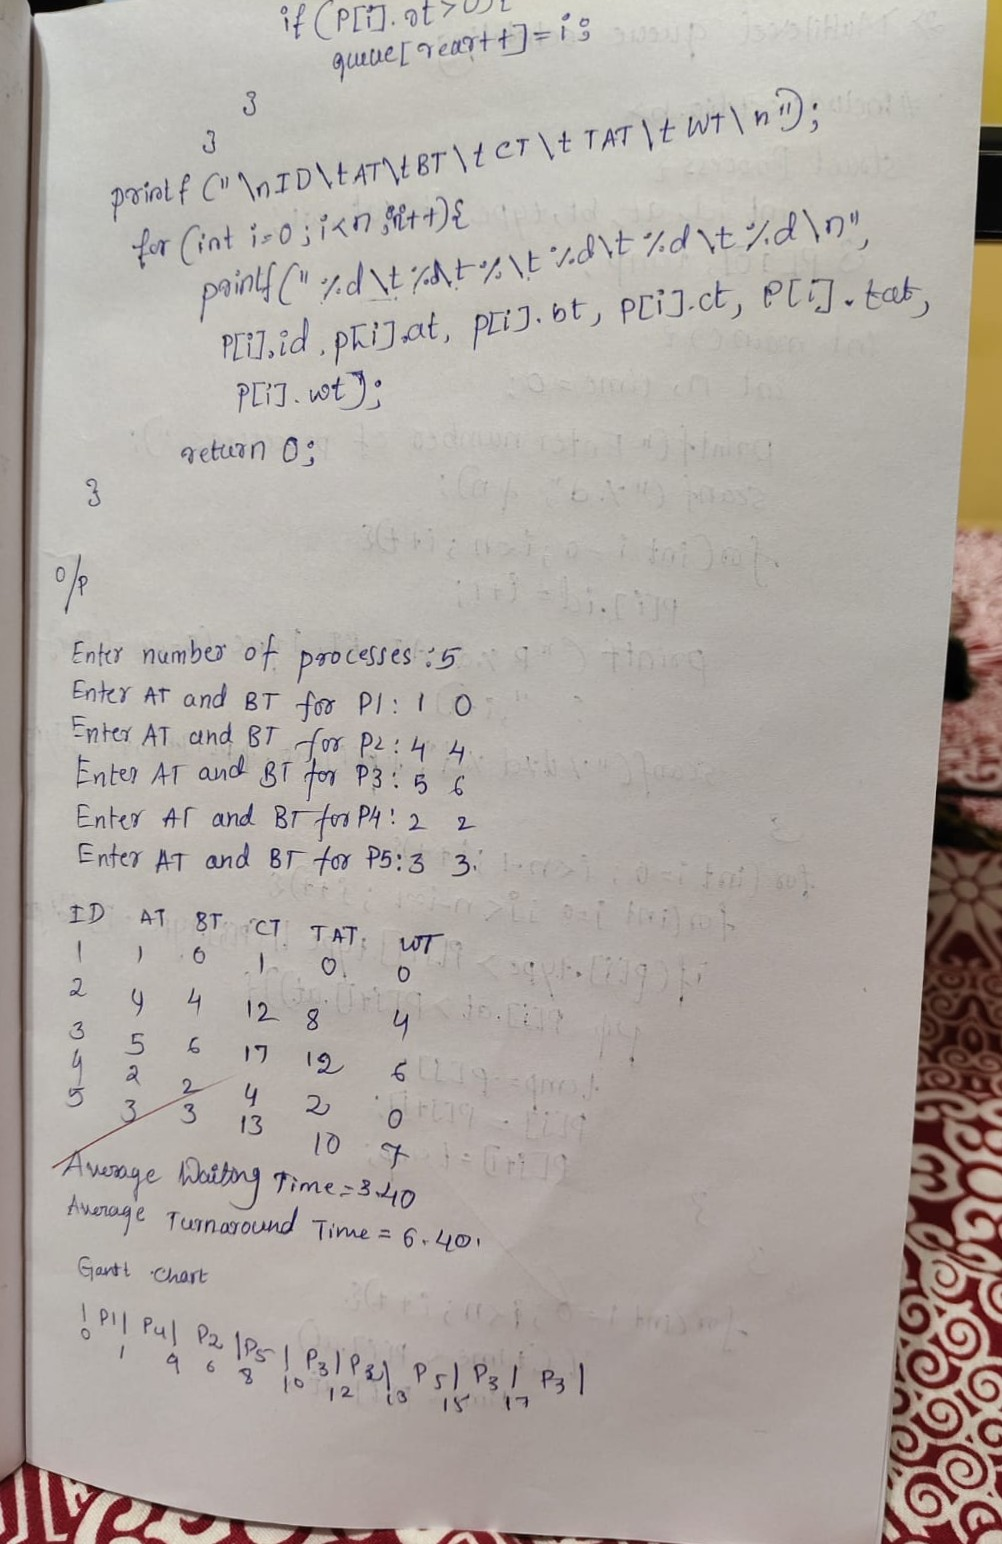 if (P[i].at > 0){
queue[rear++] = i;
}
}
printf ("\nID\tAT\tBT\tCT\tTAT\tWT\n");
for (int i=0; i<n; i++){
printf(" %d\t %d\t %\t %d\t %d\t %d\n",
P[i].id, p[i].at, p[i].bt, P[i].ct, P[i].tat,
P[i].wt);
return 0;
}
O/P
Enter number of processes : 5
Enter AT and BT for P1 : 1 0
Enter AT and BT for P2 : 4 4
Enter AT and BT for P3 : 5 6
Enter AT and BT for P4 : 2 2
Enter AT and BT for P5 : 3 3.
ID AT BT CT TAT WT
1 1 0 1 0 0
2 4 4 12 8 4
3 5 6 17 12 6
4 2 2 4 2 0
5 3 3 13 10 7
Average Waiting Time = 3.40
Average Turnaround Time = 6.40.
Gantt Chart
| P1 | P4 | P2 | P5 | P3 | P2 | P5 | P3 | P3 |
0 1 4 6 8 10 12 13 15 17